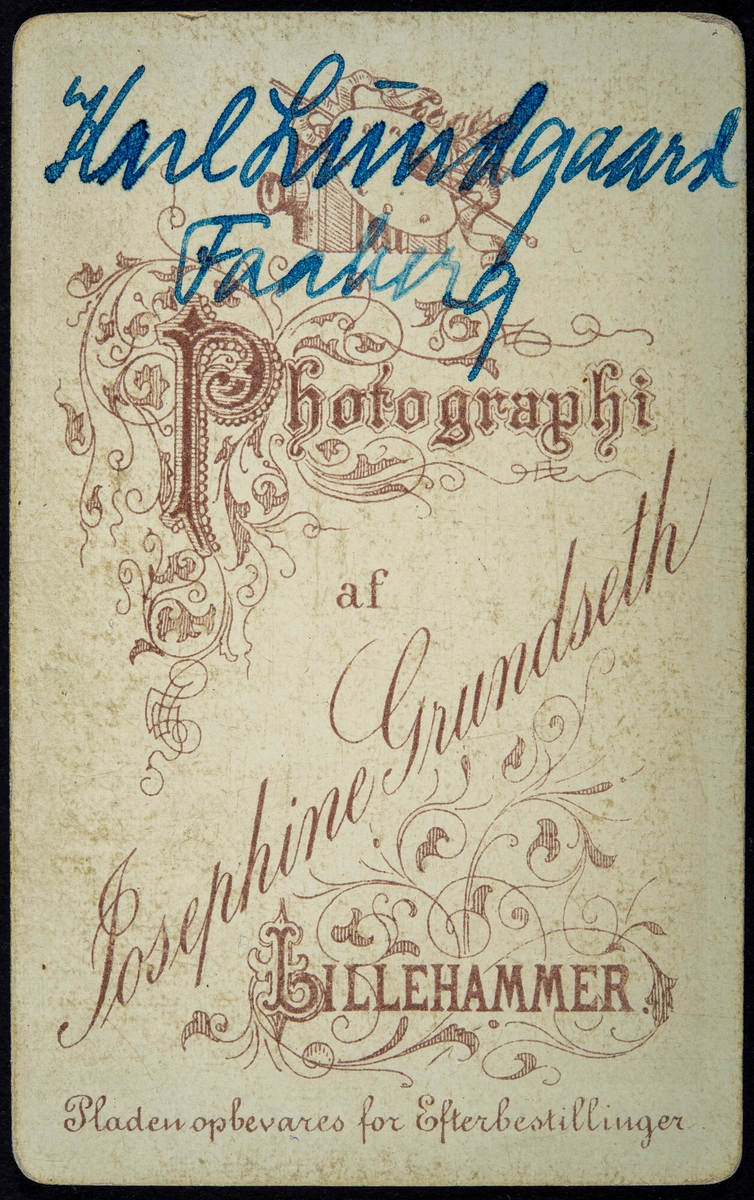 Karl Lundgaard
Faaberg
Photographi
af
Josephine Grundseth
LILLEHAMMER.
Pladen opbevares for Efterbestillinger